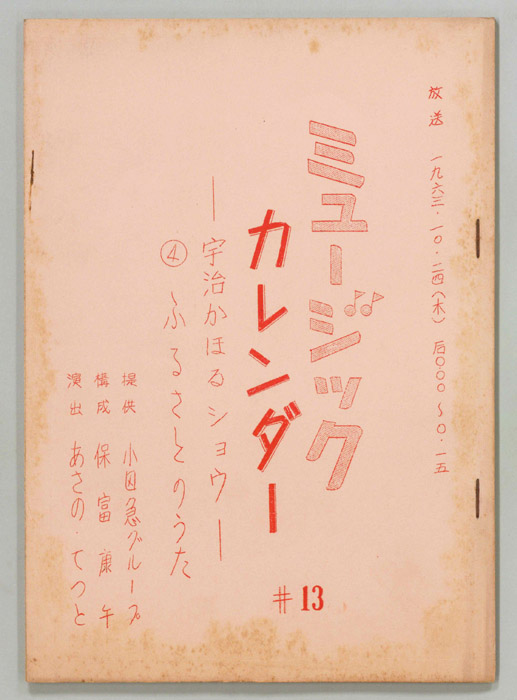 放送 一九六三・一〇・二四(木) 后〇〇〇〜〇・一五
ミュージック
カレンダー
#13
―宇治かほるショウ―
④ ふるさとのうた
提供 小田急グループ
構成 保富康午
演出 あさの・てつと